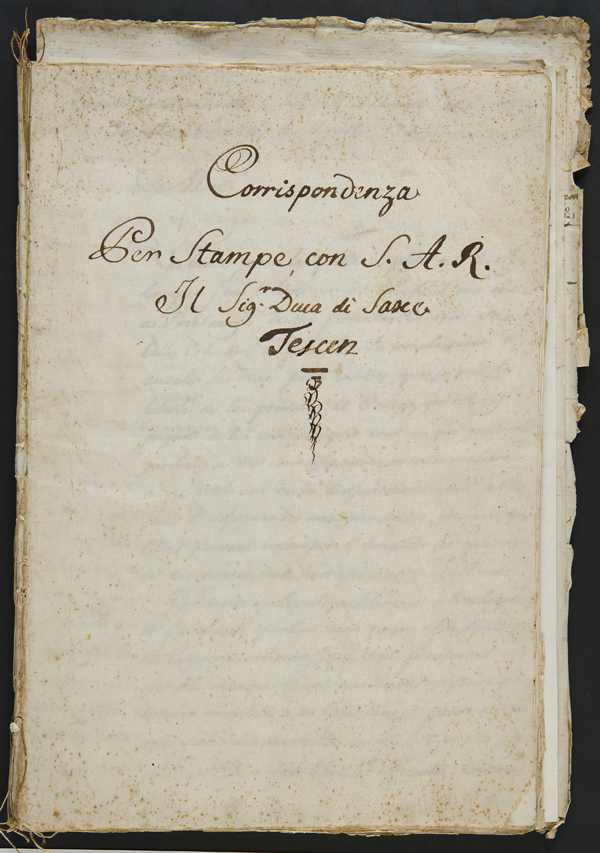 Corrispondenza
Per Stampe, con S. A. R.
Il Sig.r Duca di Saxe
Tescen